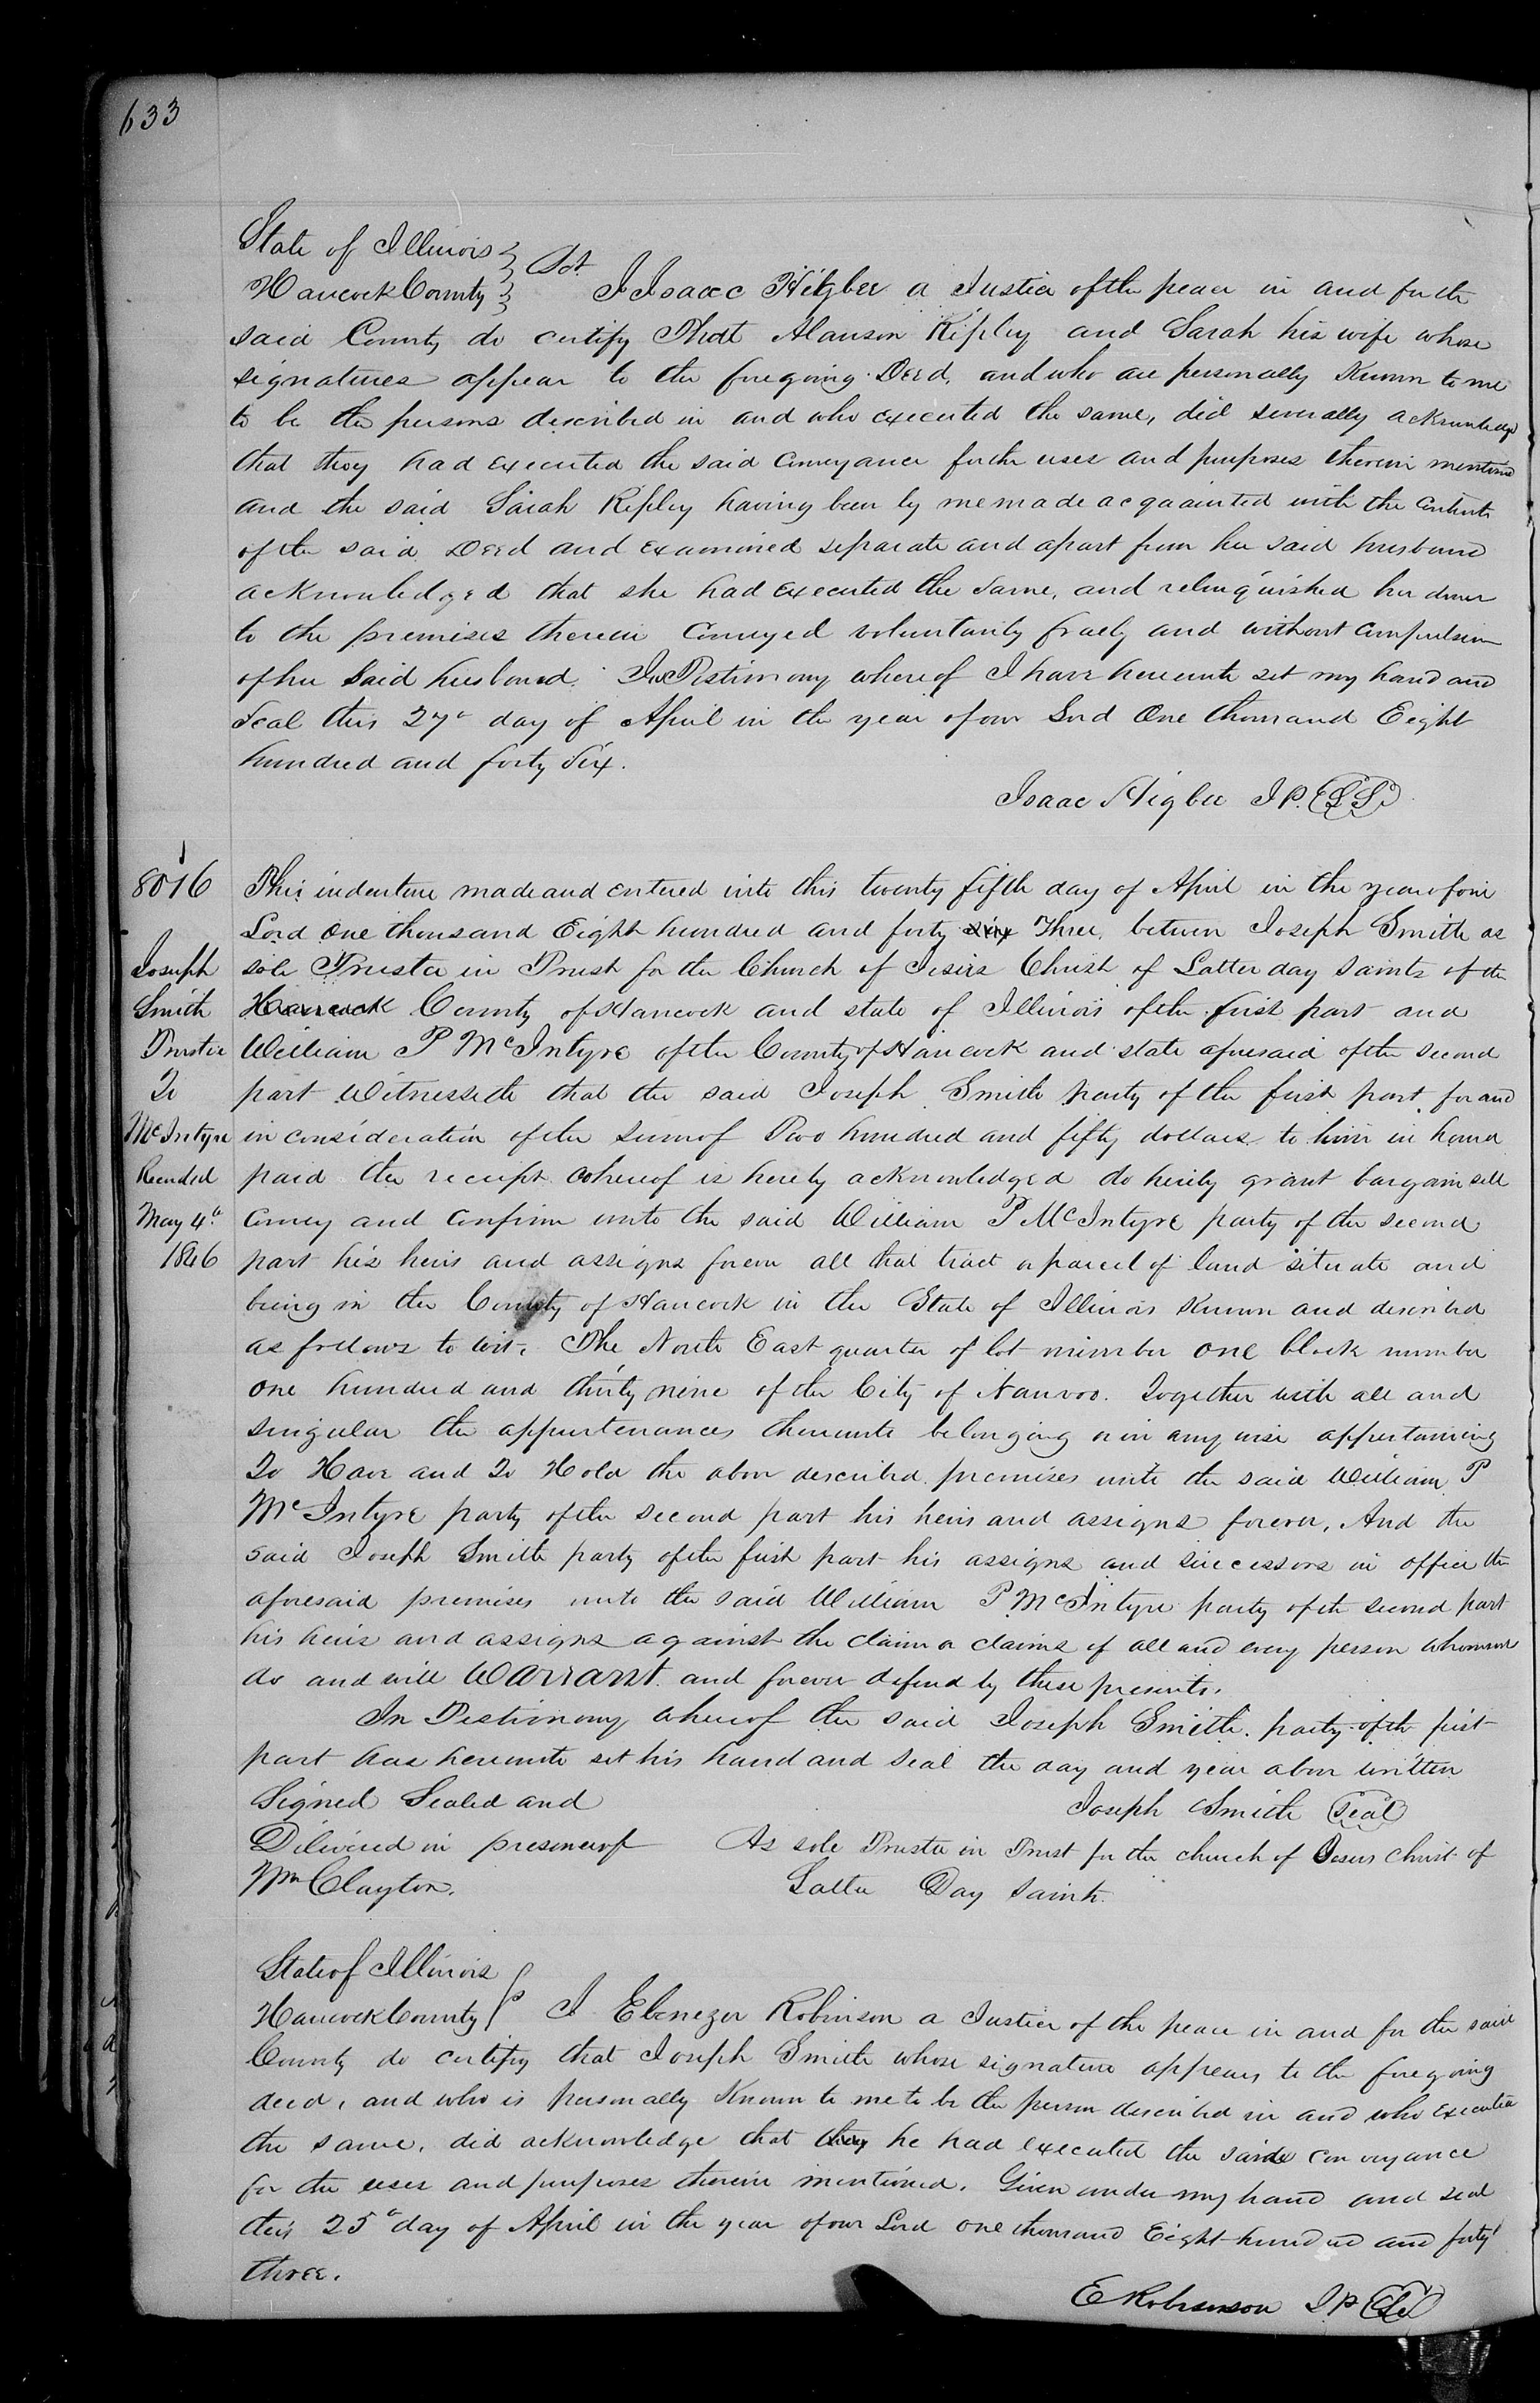 633
State of Illinois
Hancock County } Sct. I Isaac Higbee a Justice of the peace in and for the
said County do certify That Alanson Ripley and Sarah his wife whose
signatures appear to the foregoing Deed, and who are personally Known to me
to be the persons described in and who executed the same, did severally acknowledge
that they had executed the said Conveyance for the uses and purposes therein mentioned
and the said Sarah Ripley having been by me made acquainted with the contents
of the said Deed and examined separate and apart from her said husband
acknowledged that she had executed the same, and relinquished her dower
to the premises therein Conveyed voluntarily freely and without compulsion
of her said husband. In Testimony whereof I have hereunto set my hand and
Seal this 27th day of April in the year of our Lord One thousand Eight
hundred and forty Six.
Isaac Higbee J P. (L S)
8016
Joseph
Smith
Trustee
To
McIntyre
Recorded
May 4th
1846
This indenture made and entered into this twenty fifth day of April in the year of our
Lord One thousand Eight hundred and forty six Three, between Joseph Smith as
sole Trustee in Trust for the Church of Jesus Christ of Latter day Saints of the
Hancock County of Hancock and state of Illinois of the first part and
William P McIntyre of the County of Hancock and state aforesaid of the second
part Witnesseth that the said Joseph Smith party of the first part, for and
in consideration of the sum of Two hundred and fifty dollars to him in hand
paid the receipt whereof is hereby acknowledged do hereby grant bargain sell
Convey and Confirm unto the said William P McIntyre party of the second
part his heirs and assigns forever all that tract or parcel of land situate and
being in the County of Hancock in the State of Illinois Known and described
as follows to wit. The North East quarter of lot number one block number
one hundred and thirty nine of the City of Nauvoo. Together with all and
singular the appurtenances thereunto belonging or in any wise appertaining
To Have and To Hold the above described premises unto the said William P
McIntyre party of the second part his heirs and assigns forever, And the
said Joseph Smith party of the first part his assigns and successors in office the
aforesaid premises unto the said William P McIntyre party of the second part
his heirs and assigns against the claim or claims of all and every person whomsoever
do and will Warrant and forever defend by these presents.
In Testimony whereof the said Joseph Smith party of the first
part has hereunto set his hand and seal the day and year above written
Signed Sealed and Joseph Smith (Seal)
Delivered in presence of As sole Trustee in Trust for the church of Jesus Christ of
Wm Clayton. Latter Day Saints.
State of Illinois
Hancock County } I Ebenezer Robinson a Justice of the peace in and for the said
County do certify that Joseph Smith whose signature appears to the foregoing
deed, and who is personally Known to me to be the person described in and who executed
the same, did acknowledge that they he had executed the said conveyance
for the uses and purposes therein mentioned. Given under my hand and seal
this 25th day of April in the year of our Lord one thousand Eight hundred and forty
three.
E Robinson J P (LS)